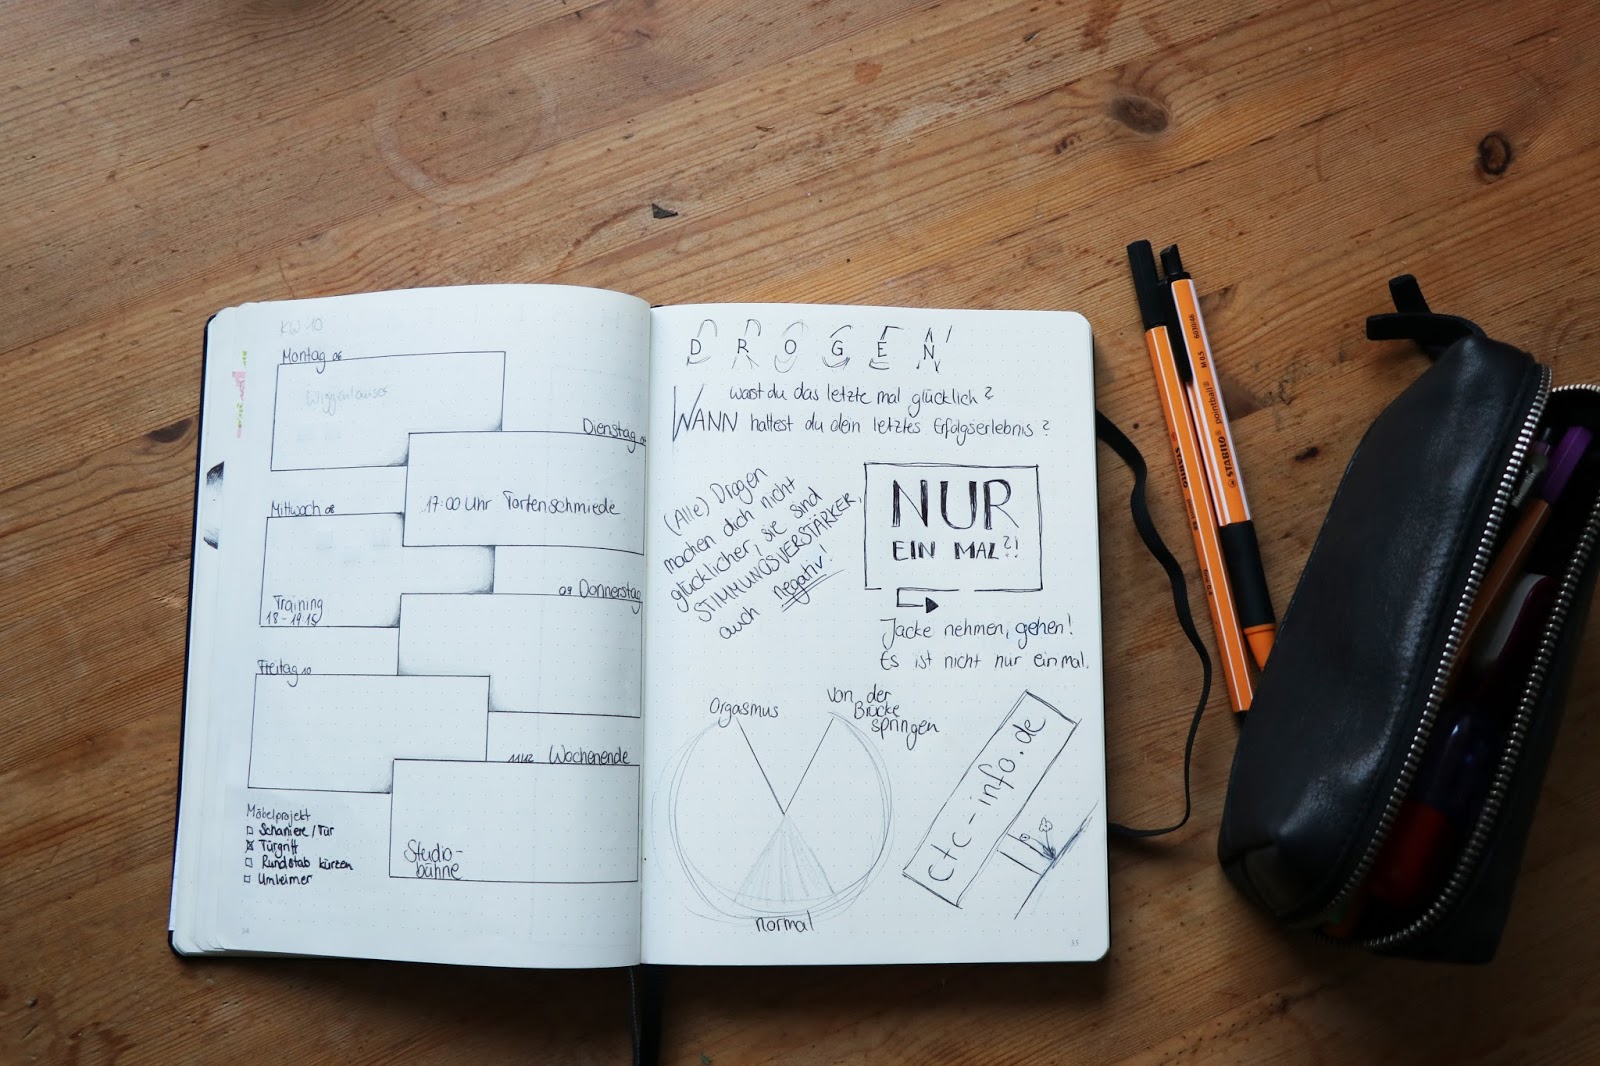 KW 10
Montag 06
Dienstag 07
17:00 Uhr Tortenschmiede
Mittwoch 08
Training
18-19:15
09 Donnerstag
Freitag 10
11/12 Wochenende
Studio-
bühne
Möbelprojekt
Schaniere/Tür
Türgriff
Rundstab kürzen
Umleimer
34
DROGEN
warst du das letzte mal glücklich?
WANN hattest du dein letztes Erfolgserlebnis?
(Alle) Drogen
machen dich nicht
glücklicher, sie sind
STIMMUNGSVERSTÄRKER,
auch negativ!
NUR
EIN MAL?!
Jacke nehmen, gehen!
Es ist nicht nur einmal.
Orgasmus
von der
Brücke
springen
normal
ctc-info.de
35
STABILO
STABILO pointball